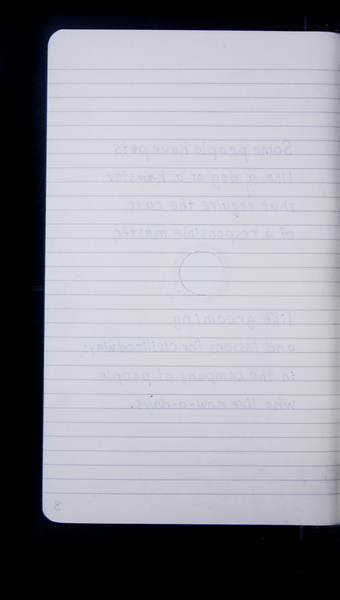 Some people have pets
like a dog or a hamster
that require the care
of a responsible master,
like grooming
and lessons for civilized ways
in the company of people
who live now-a-days.
8